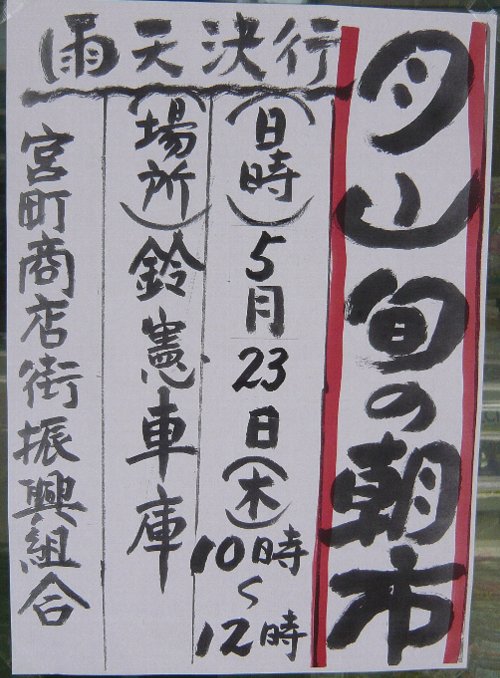 月山旬の朝市
雨天決行
(日時)5月23日(木)10時~12時
(場所)鈴憲車庫
宮町商店街振興組合